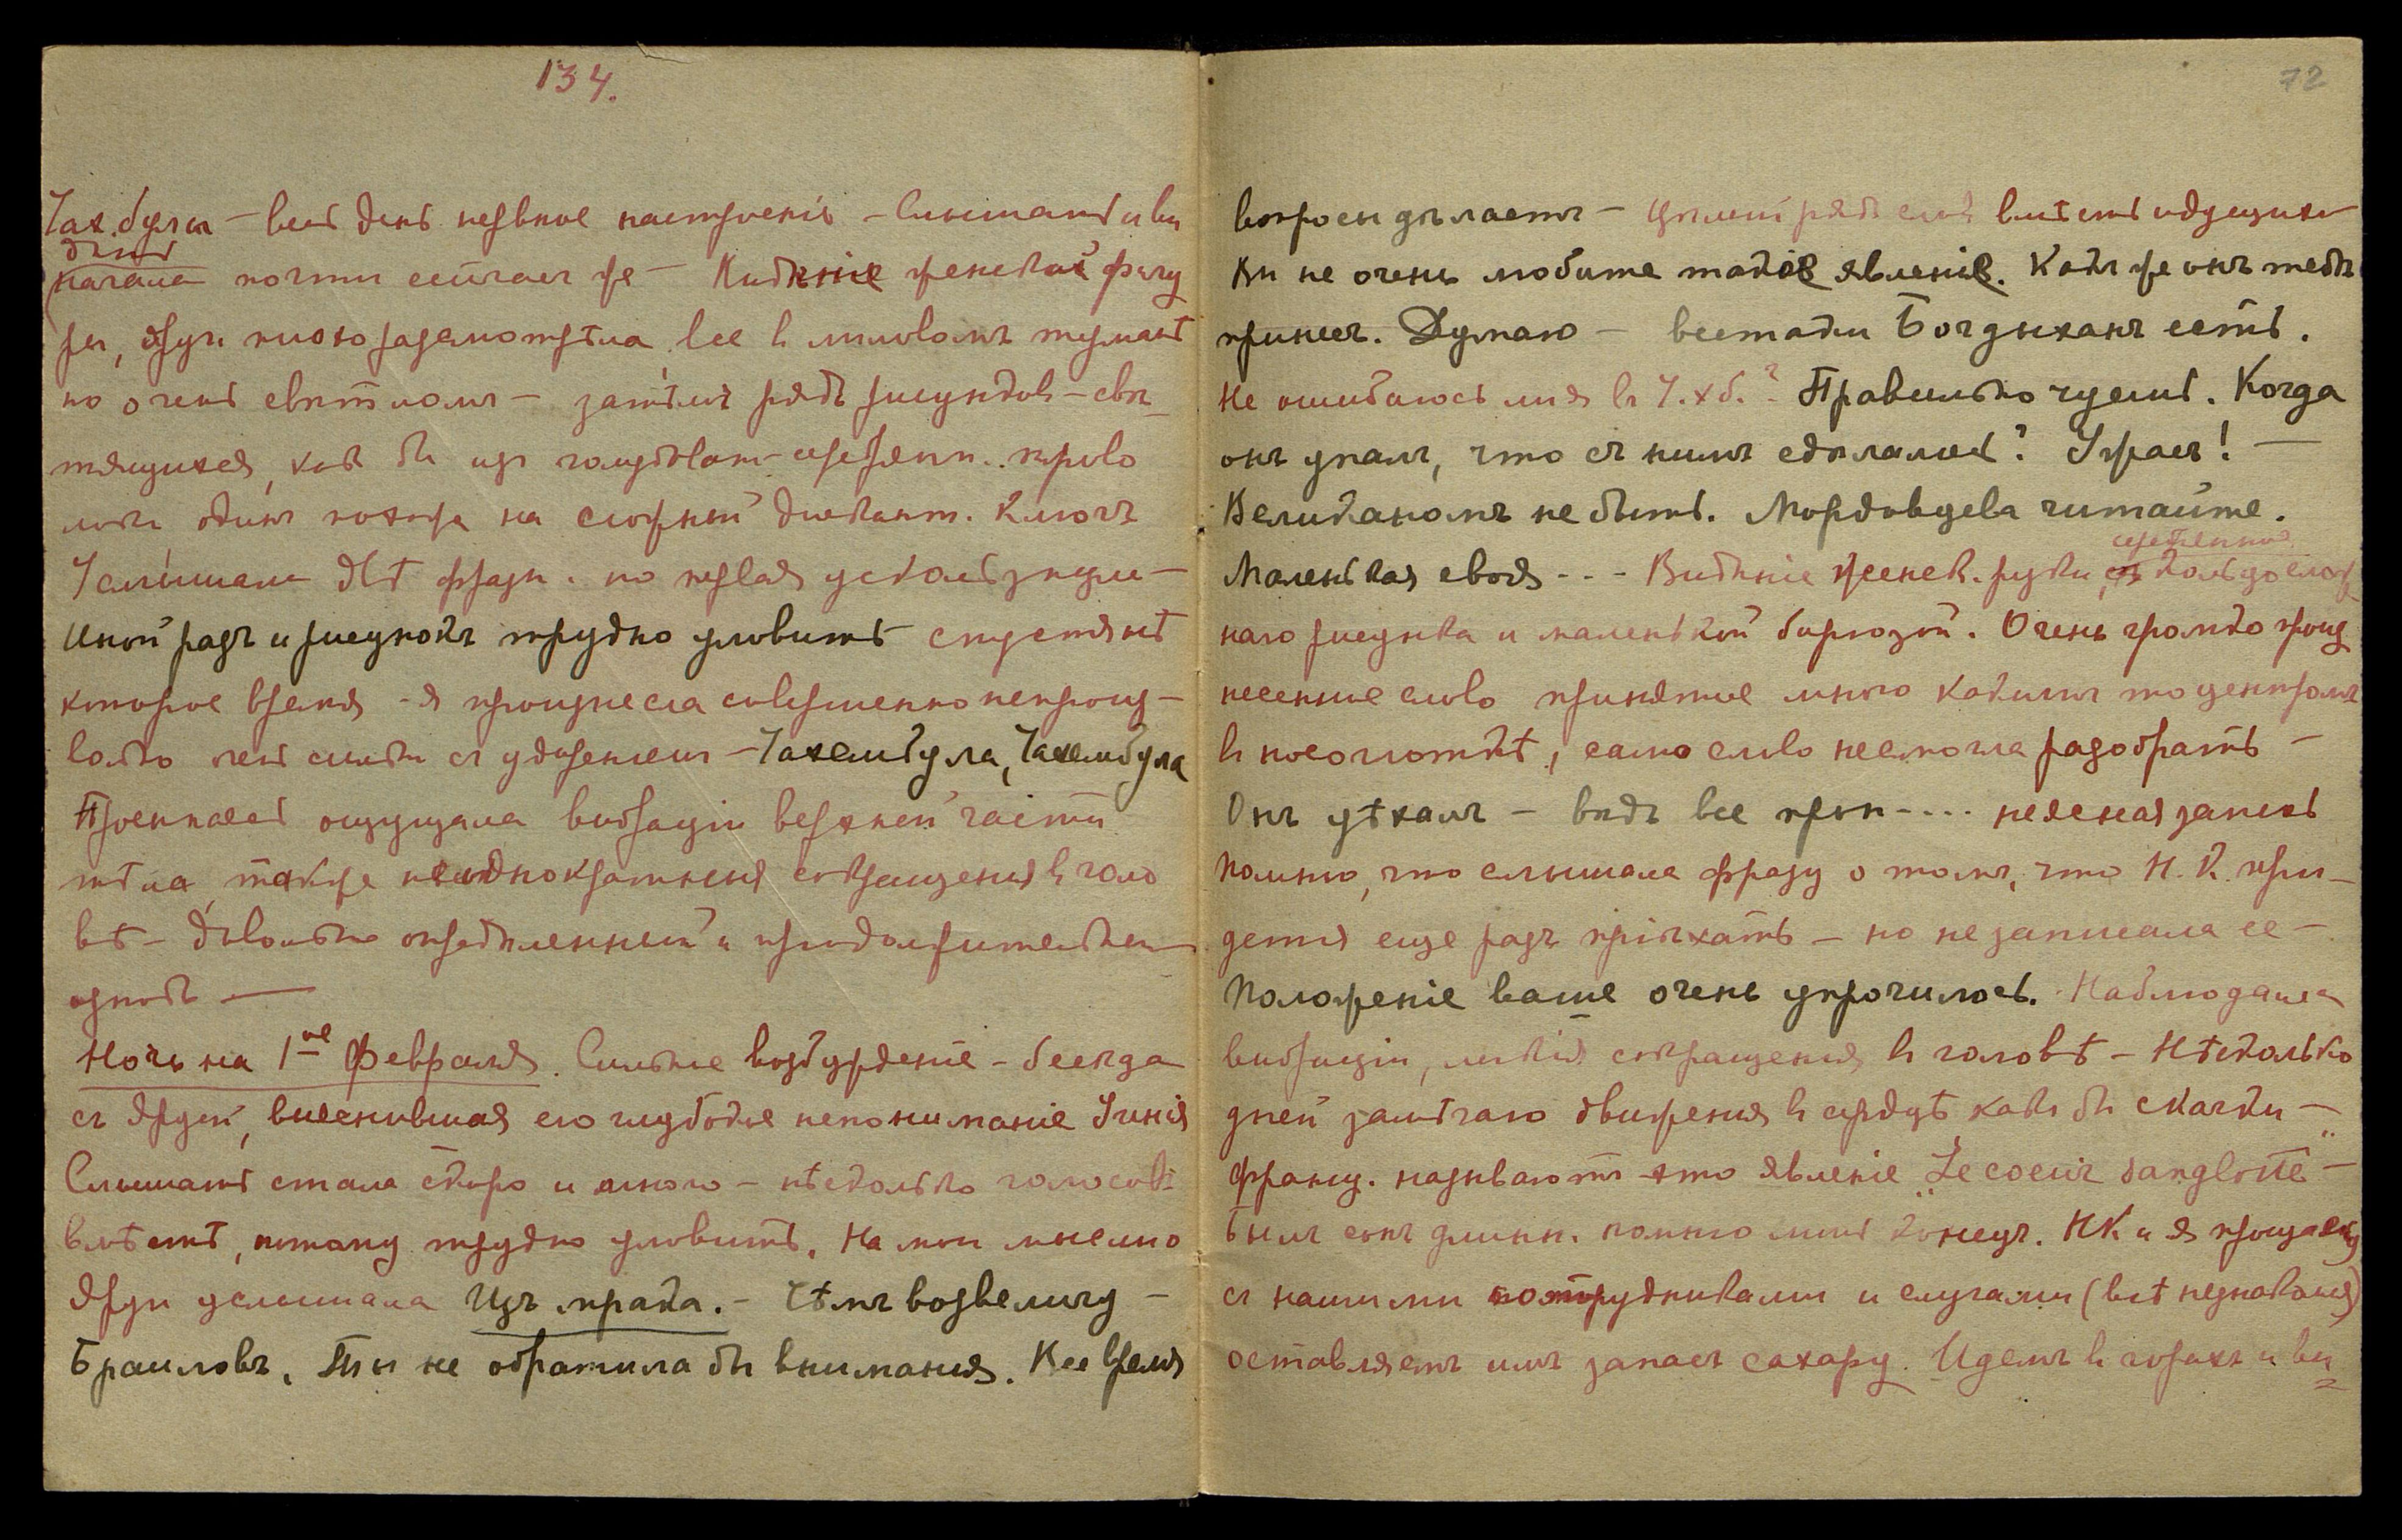 134.
Тах.булы – весь день нервное настроеніе – Слышать и ви
дѣть
начала почти сейчас же – Видѣніе женской фигу
ры, друг плохо разсмотрѣла, все в лиловомъ туманѣ
но очень свѣтломъ – затѣмъ рядъ рисунковъ – свѣ-
тящихся, как бы изъ голубоват-серебрян. прово
локи один похожъ на сложный дискант. Ключъ
Услышала двѣ фразы. но первая ускользнула –
Иной разъ и рисунокъ трудно уловить спустя нѣ
которое время – я произнесла совершенно непроиз-
вольно очень сильно съ удареніемъ – Тахембула, Тахембула
Проснулась ощущала вибраціи верхней части
тѣла, также неоднократныя сокращенія в голо
вѣ – довольно опредѣленный и продолжительный
ознобъ —
Ночь на 1ое Февраля. Сильное возбужденіе – бесѣда
съ Ярузй, выяснившая его глубокое непониманіе Ученія
Слышать стала скоро и много – нѣсколько голосовъ
вмѣстѣ, потому трудно уловить. На мои мысли о
услышала Изъ мрака. – Чѣмъ возвеличу –
Браиловъ. Ты не обратила бы вниманія. Все время
72
вопросы дѣлаетъ – Цѣлый рядъ словъ вмѣстѣ идущихъ
Вы не очень любите такое явленіе. Какъ же онъ тебѣ
принесъ. Думаю – всетаки Богдыханъ есть.
Не ошибаюсь ли я въ Т.х б.? Правильно чуешь. Когда
онъ узналъ, что съ нимъ сдѣлалось? Ужасъ! —
Великаномъ не быть. Мордовцева читайте.
серебрянное
Маленькая своя - - - Видѣніе женск. руки, съ кольцо слож
наго рисунка и маленькой бирюзой. Очень громко произ
несенное слово принятое мною какимъ то центромъ
въ носоглоткѣ, само слово не смогла разобрать –
Онъ уѣхалъ – вѣдь все прон- . . . . неясная запись
Помню, что слышала фразу о томъ, что Н. К. при-
дется еще разъ пріѣхать – но не записала ее –
Положеніе ваше очень упрочилось. Наблюдала
вибраціи, легкія сокращенія въ головѣ – Нѣсколько
дней замѣчаю движенія въ сердцѣ какъ бы скачки –
француз. называютъ это явленіе „Le coeur sanglote"–
Былъ сонъ длинн. помню лишь конецъ. НК и я прощаемся
съ нашими сотрудниками и слугами (всѣ незнакомыя)
оставляетъ имъ запасъ сахару. Идемъ въ горахъ и ви